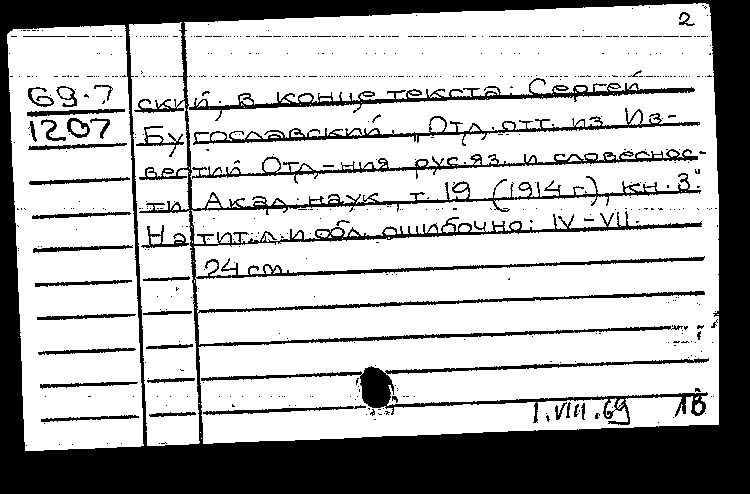 2
69-7
1207
ский; в конце текста: Сергей
Бугославский. "Отд. отт. из Из-
вестий Отд-ния рус.яз. и словеснос-
ти Акад. наук, т. 19 (1914 г.), кн. 3."
На тит.л. и обл. ошибочно: IV-VII.
24 см.
1.VIII.69 1В